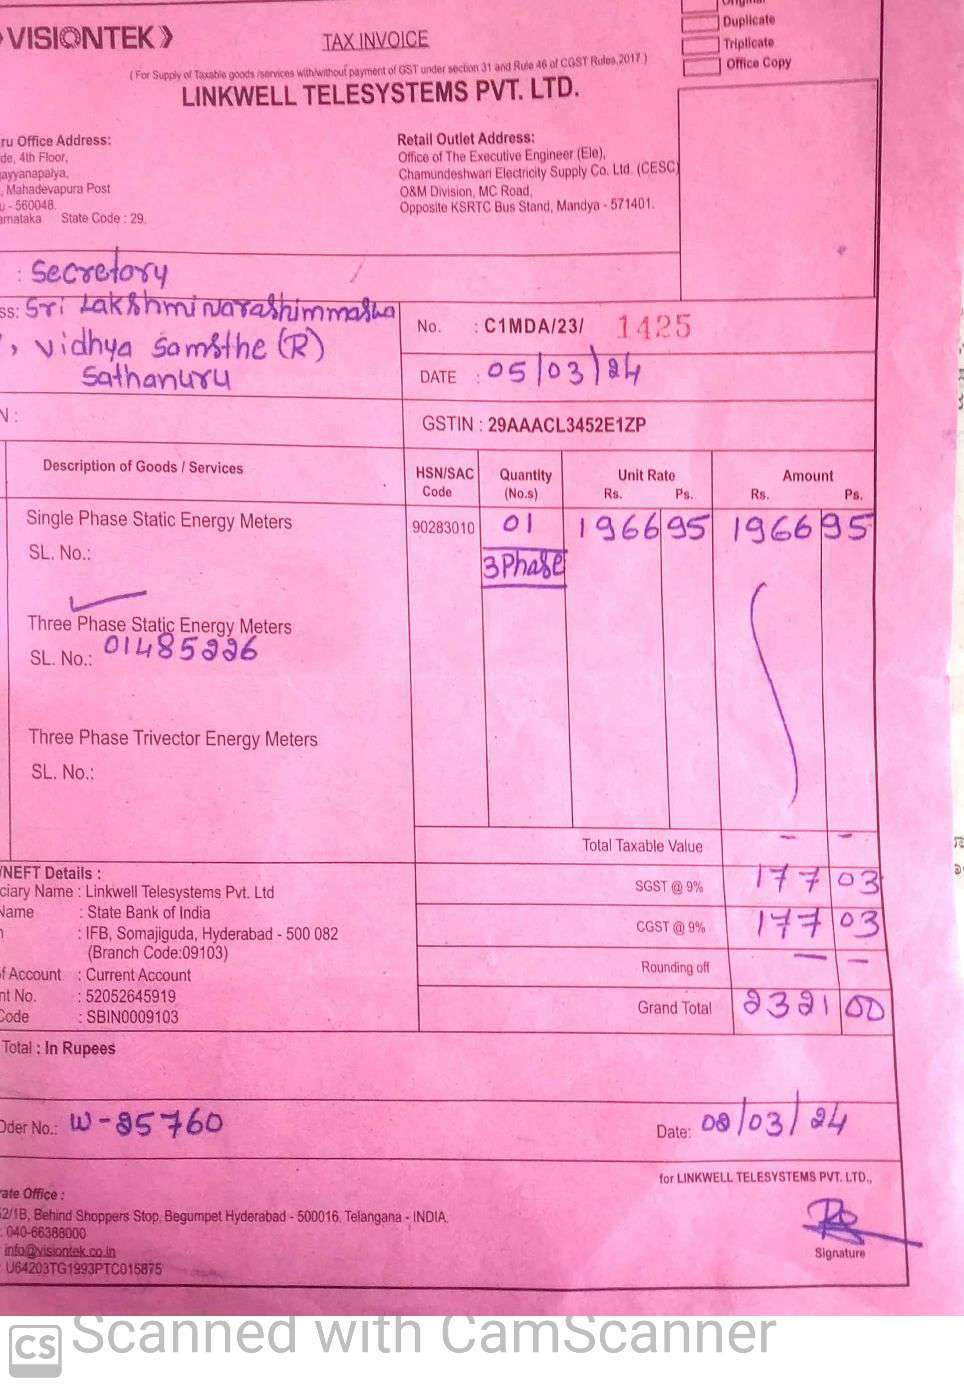 VISIONTEK
TAX INVOICE
Duplicate
Triplicate
Office Copy
( For Supply of Taxable goods /services with/without payment of GST under section 31 and Rule 46 of CGST Rules,2017 )
LINKWELL TELESYSTEMS PVT. LTD.
ru Office Address:
de, 4th Floor,
ayyanapalya,
, Mahadevapura Post
u - 560048.
arnataka State Code : 29.
Retail Outlet Address:
Office of The Executive Engineer (Ele),
Chamundeshwari Electricity Supply Co. Ltd. (CESC)
O&M Division, MC Road,
Opposite KSRTC Bus Stand, Mandya - 571401.
: Secretory
ss: Sri Lakshminarashimmaswa
, vidhya Samsthe (R)
Sathanuru
No. : C1MDA/23/ 1425
DATE : 05/03/24
N :
GSTIN : 29AAACL3452E1ZP
Description of Goods / Services HSN/SAC Code Quantity (No.s) Unit Rate Rs. Ps. Amount Rs. Ps.
Single Phase Static Energy Meters 90283010 01 1966 95 1966 95
SL. No.:
3 Phase
Three Phase Static Energy Meters
SL. No.: 01485226
Three Phase Trivector Energy Meters
SL. No.:
Total Taxable Value - -
SGST @ 9% 177 03
CGST @ 9% 177 03
Rounding off - -
Grand Total 2321 00
/NEFT Details :
ciary Name : Linkwell Telesystems Pvt. Ltd
Name : State Bank of India
: IFB, Somajiguda, Hyderabad - 500 082
(Branch Code:09103)
f Account : Current Account
nt No. : 52052645919
Code : SBIN0009103
Total : In Rupees
Oder No.: W-25760
Date: 02/03/24
for LINKWELL TELESYSTEMS PVT. LTD.,
rate Office :
2/1B, Behind Shoppers Stop, Begumpet Hyderabad - 500016, Telangana - INDIA.
: 040-66388000
info@visiontek.co.in
U64203TG1993PTC015875
Signature
CS Scanned with CamScanner